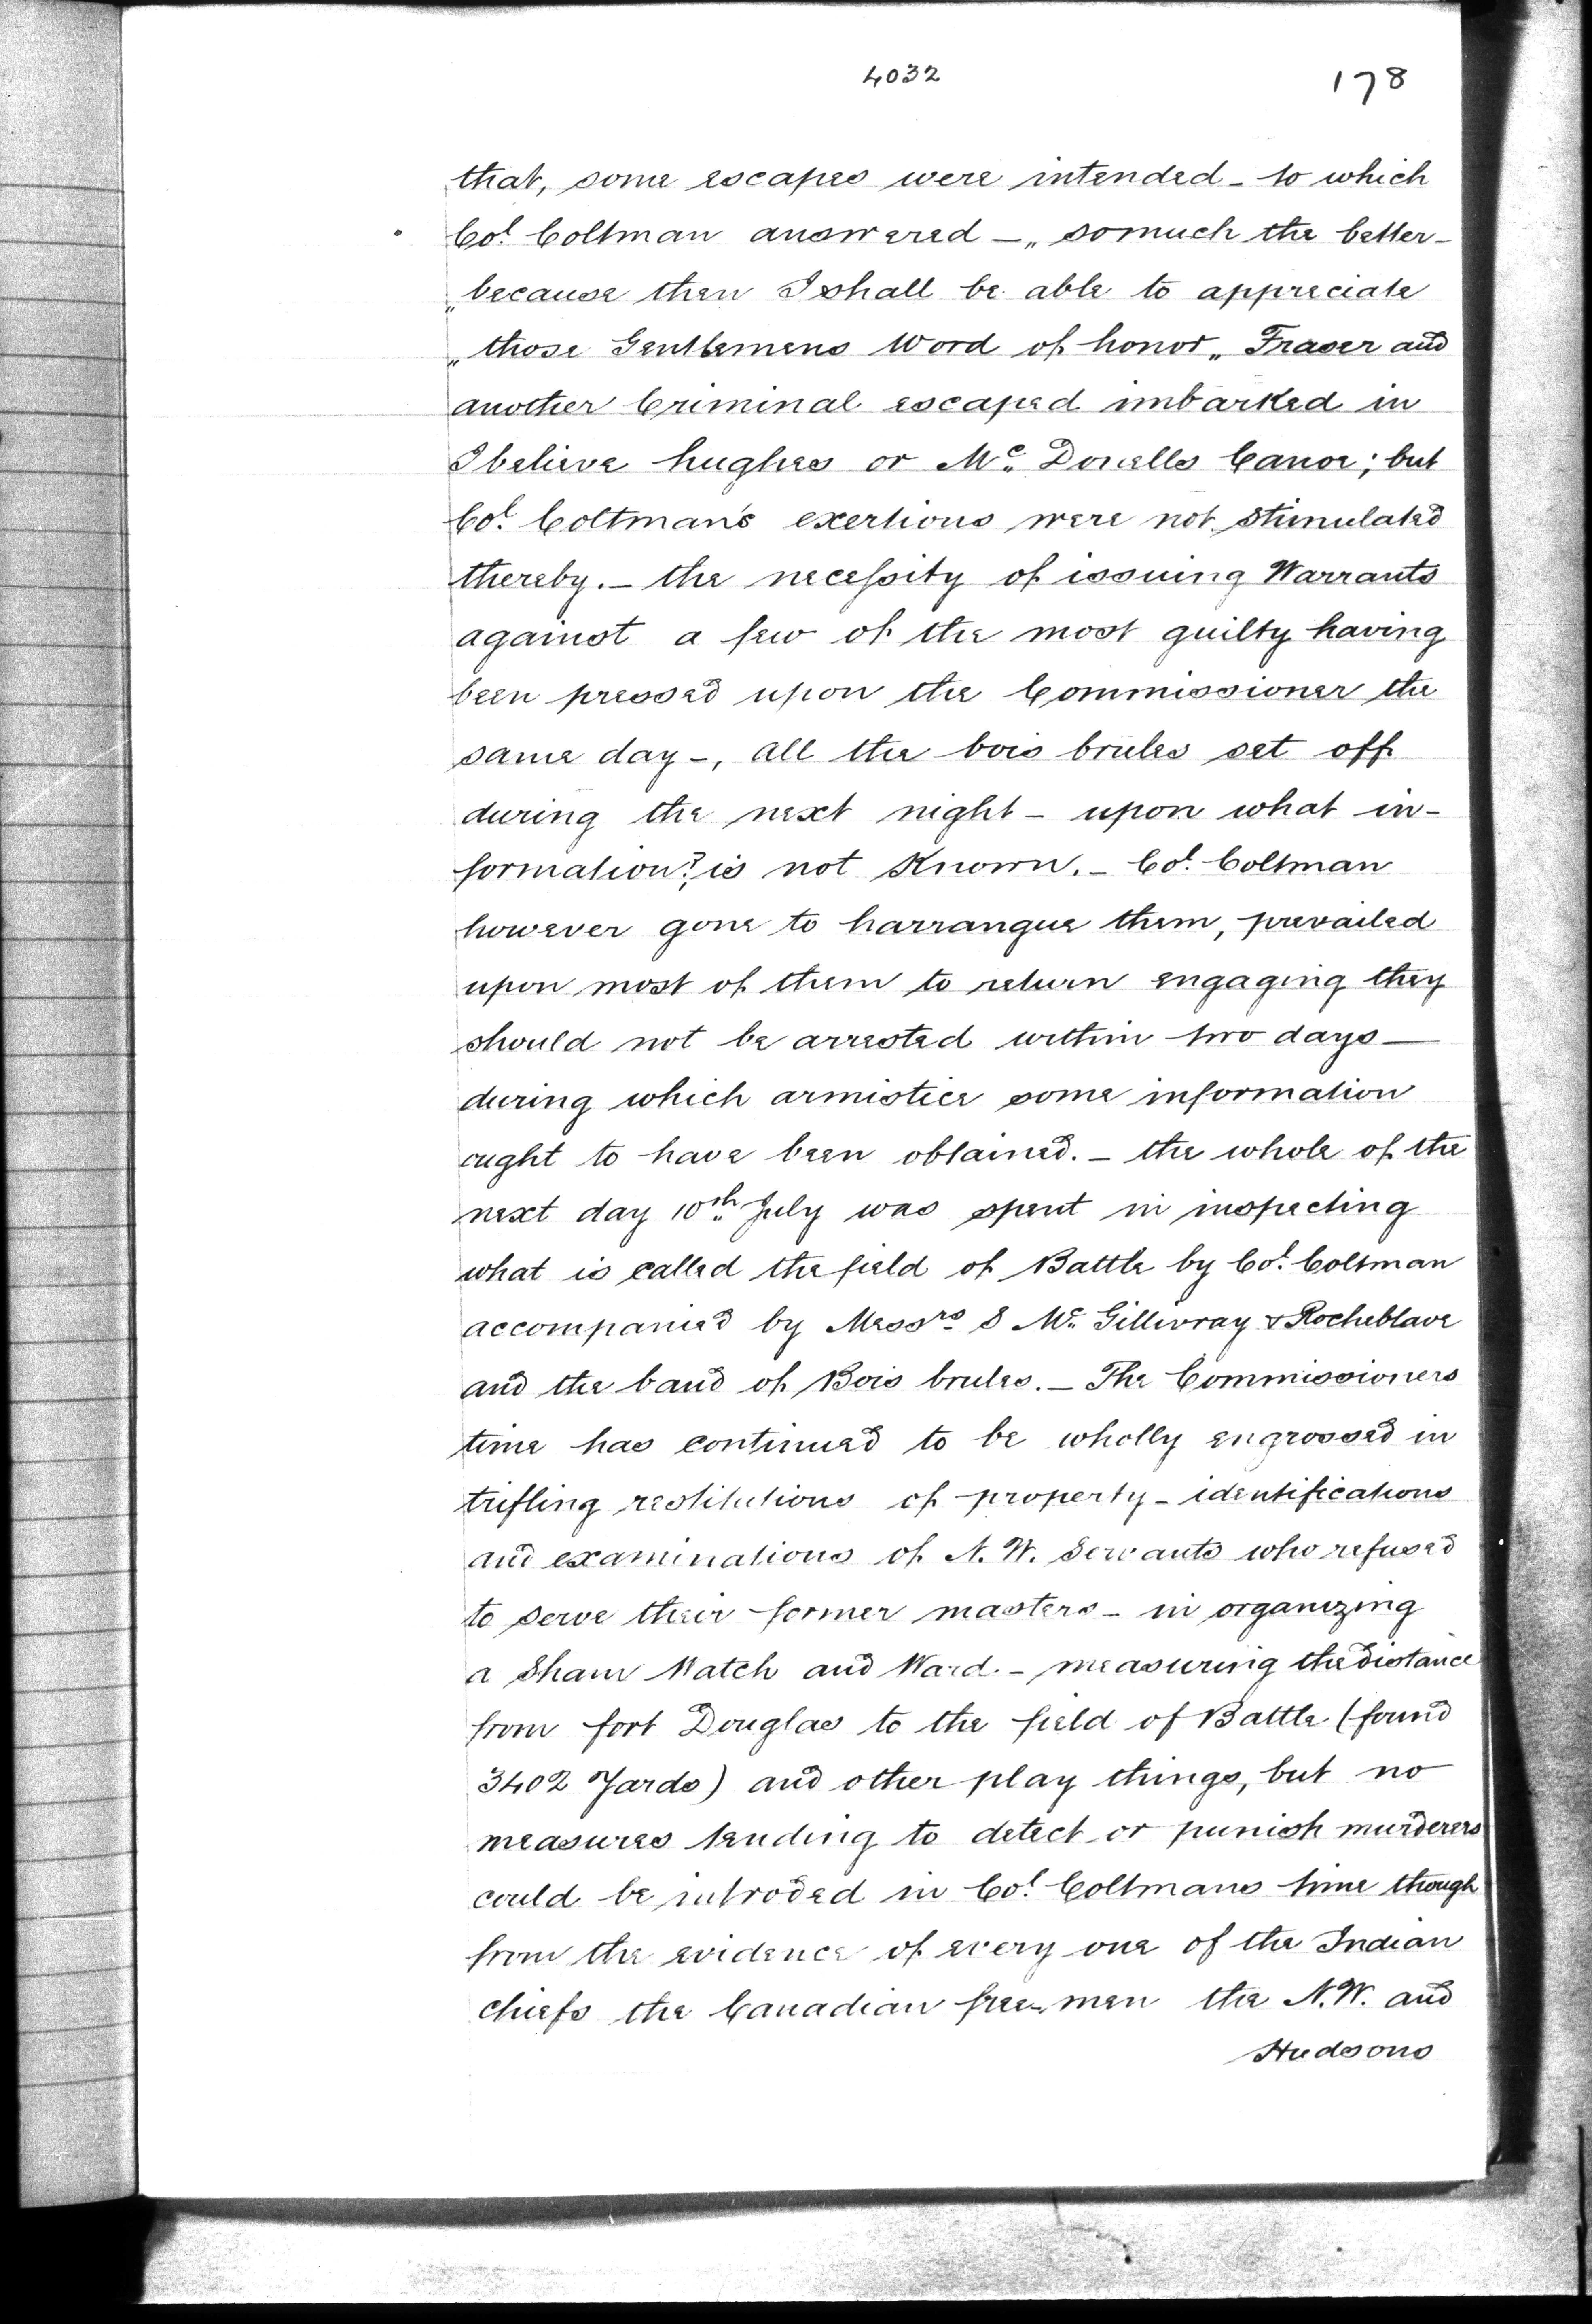 4032
178
that, some escapes were intended - to which
Col. Coltman answered - „ somuch the better -
„ because then I shall be able to appreciate
„ those Gentlemens Word of honor „ Fraser and
another Criminal escaped imbarked in
I believe hughes or Mc. Donells Canoe; but
Col. Coltman's exertions were not stimulated
thereby. - the necessity of issuing Warrants
against a few of the most guilty having
been pressed upon the Commissioner the
same day -, all the bois brules set off
during the next night - upon what in-
formation? is not Known. - Col. Coltman
however gone to harrangue them, prevailed
upon most of them to return engaging they
should not be arrested within two days —
during which armistice some information
ought to have been obtained. - the whole of the
next day 10th July was spent in inspecting
what is called the field of Battle by Col. Coltman
accompanied by Messrs S Mc. Gillivray & Rocheblave
and the band of Bois brules. - The Commissioners
time has continued to be wholly engrossed in
trifling restitutions of property - identifications
and examinations of N. W. Servants who refused
to serve their former masters - in organizing
a Sham Watch and Ward. - measuring the distance
from fort Douglas to the field of Battle (found
3402 Yards) and other play things, but no
measures tending to detect or punish murderers
could be introded in Col. Coltmans time though
from the evidence of every one of the Indian
chiefs the Canadian free-men the N.W. and
Hudsons